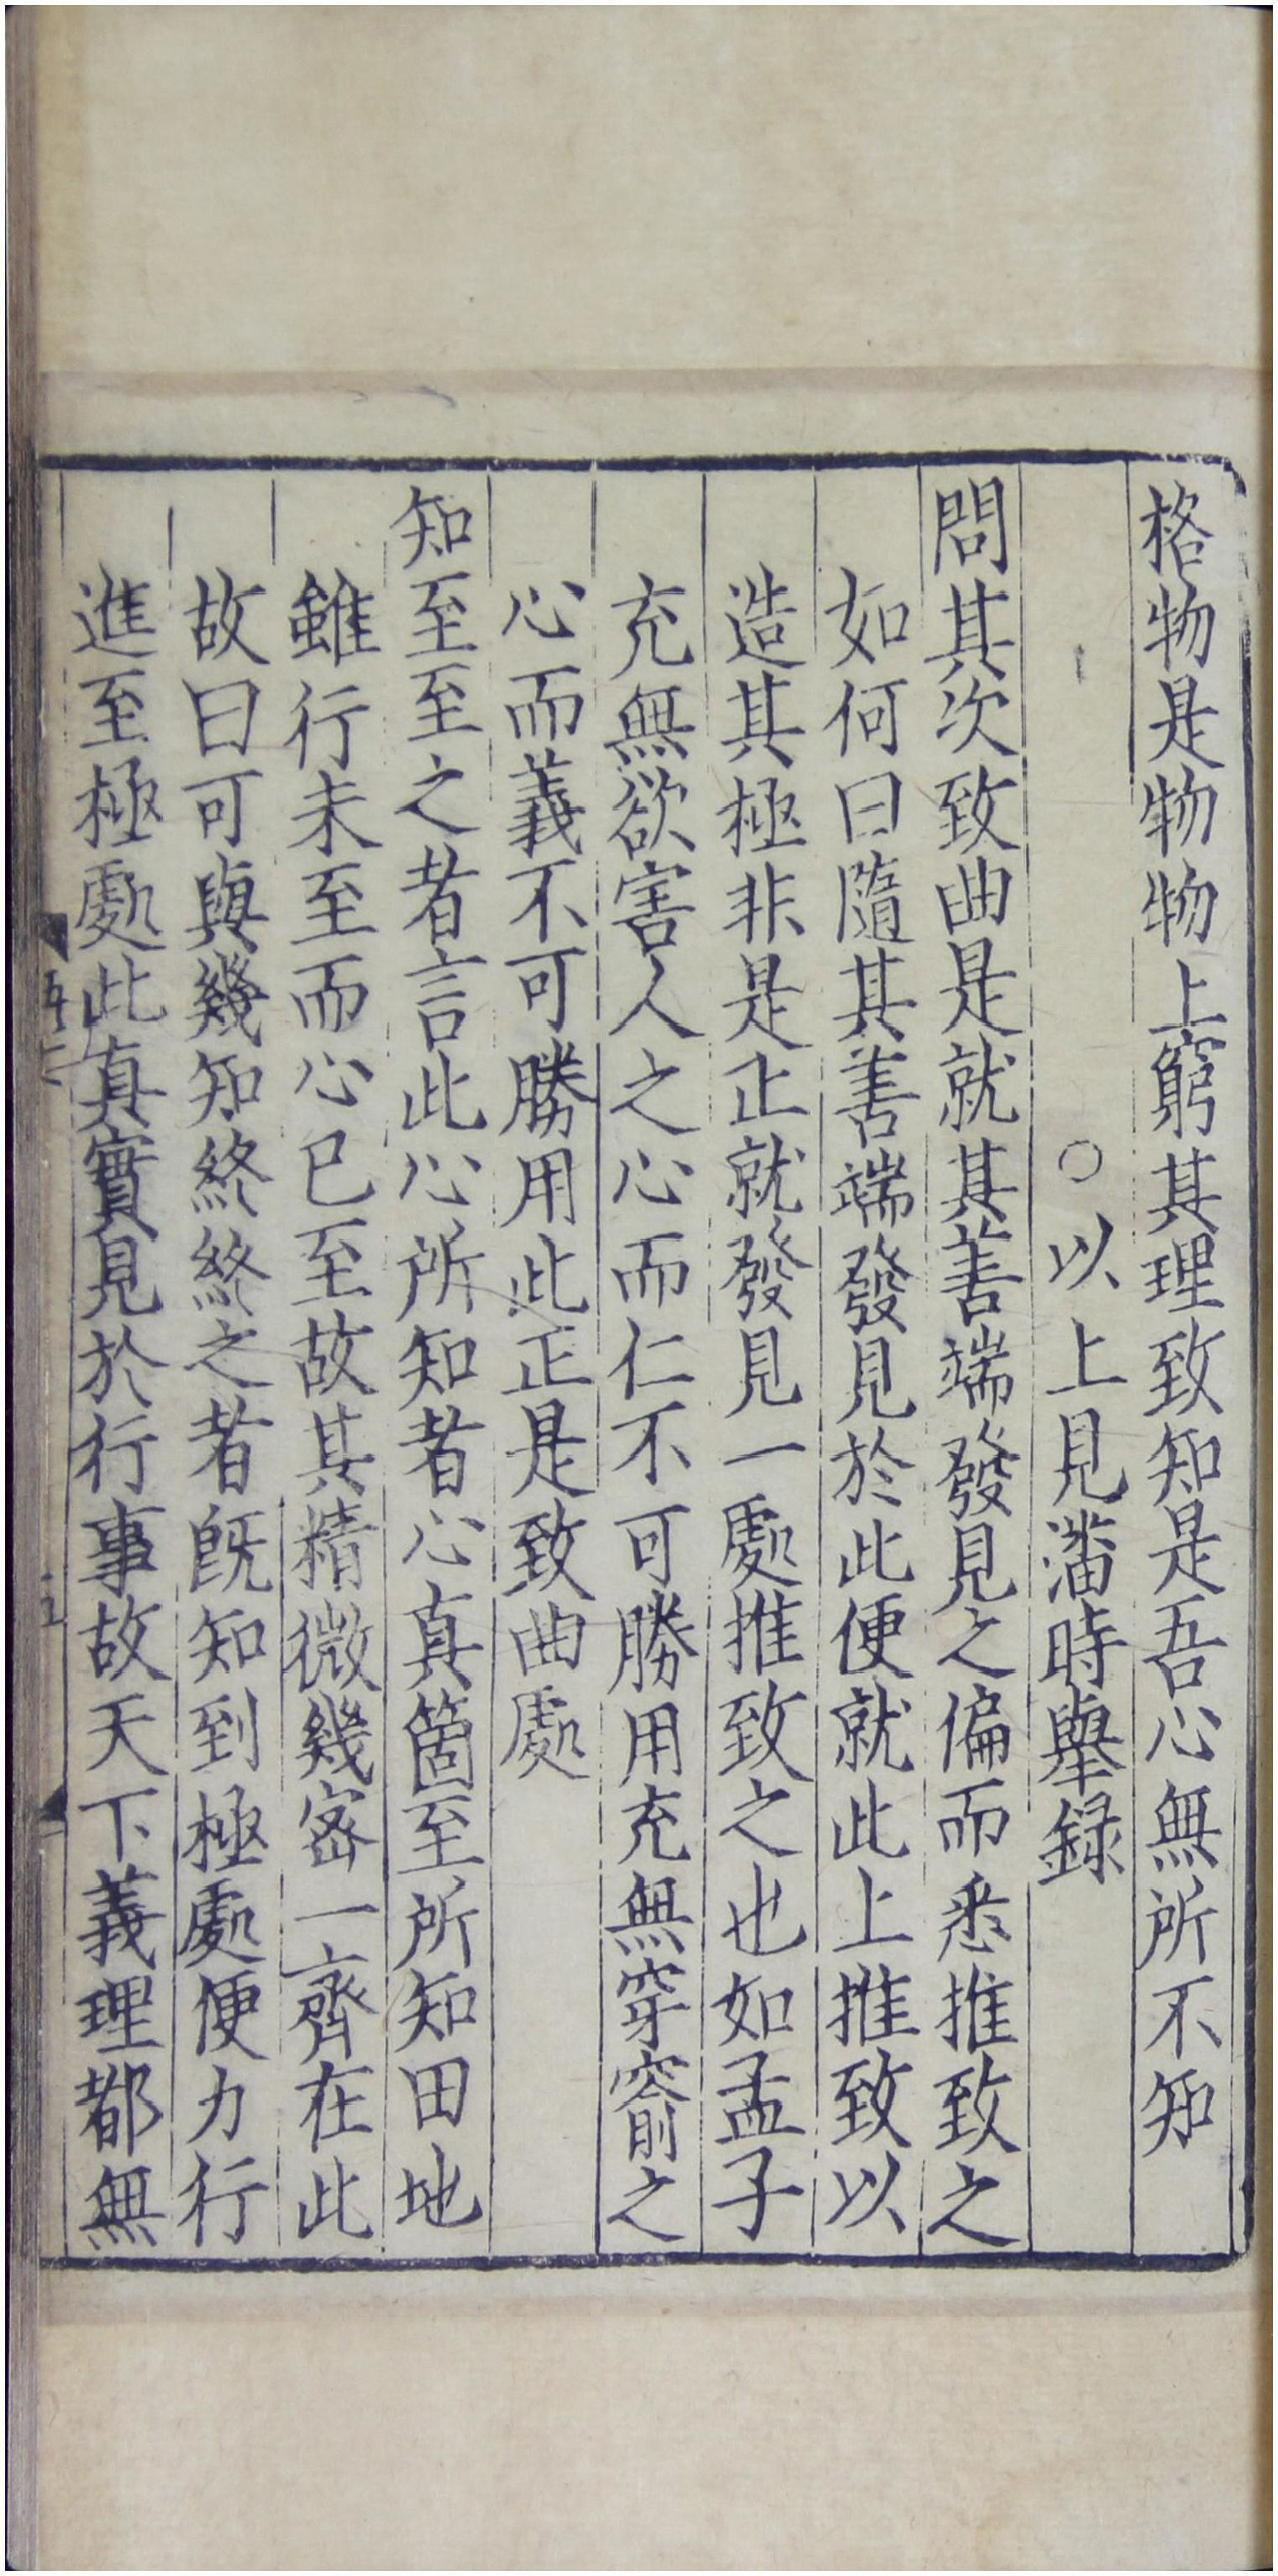 格物是物物上窮其理致知是吾心無所不知
○以上見潘時舉録
問其次致曲是就其善端發見之偏而悉推致之
如何曰隨其善端發見於此便就此上推致以
造其極非是止就發見一處推致之也如孟子
充無欲害人之心而仁不可勝用充無穿窬之
心而義不可勝用此正是致曲處
知至至之者言此心所知者心真箇至所知田地
雖行未至而心已至故其精微幾密一齊在此
故曰可與幾知終終之者既知到極處便力行
進至極處此真實見於行事故天下義理都無